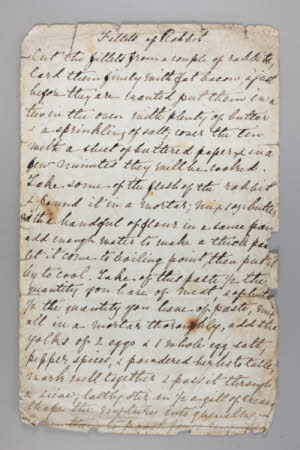 Fillets of Rabbit
Cut the fillets from a couple of rabbits
Lard them finely with fat bacon & just
before they are wanted put them in a
tin in the oven with plenty of butter
& a sprinkling of salt, cover the tin
with a sheet of buttered paper, & in a
few minutes they will be cooked.
Take some of the flesh of the rabbit
& pound it in a mortar; mix 1 oz butter
with a handful of flour in a sauce pan
add enough water to make a thick paste
let it come to boiling point then put it
by to cool. Take of this paste ½ the
quantity you have of meat & of butter
½ the quantity you have of paste, mix
all in a mortar thoroughly, add the
yolks of 2 eggs & 1 whole egg, salt,
pepper, spices, & powdered herbs to taste;
work well together & pass it through
a sieve; lastly stir in ½ a gill of cream
shape the mixture into quenelles,